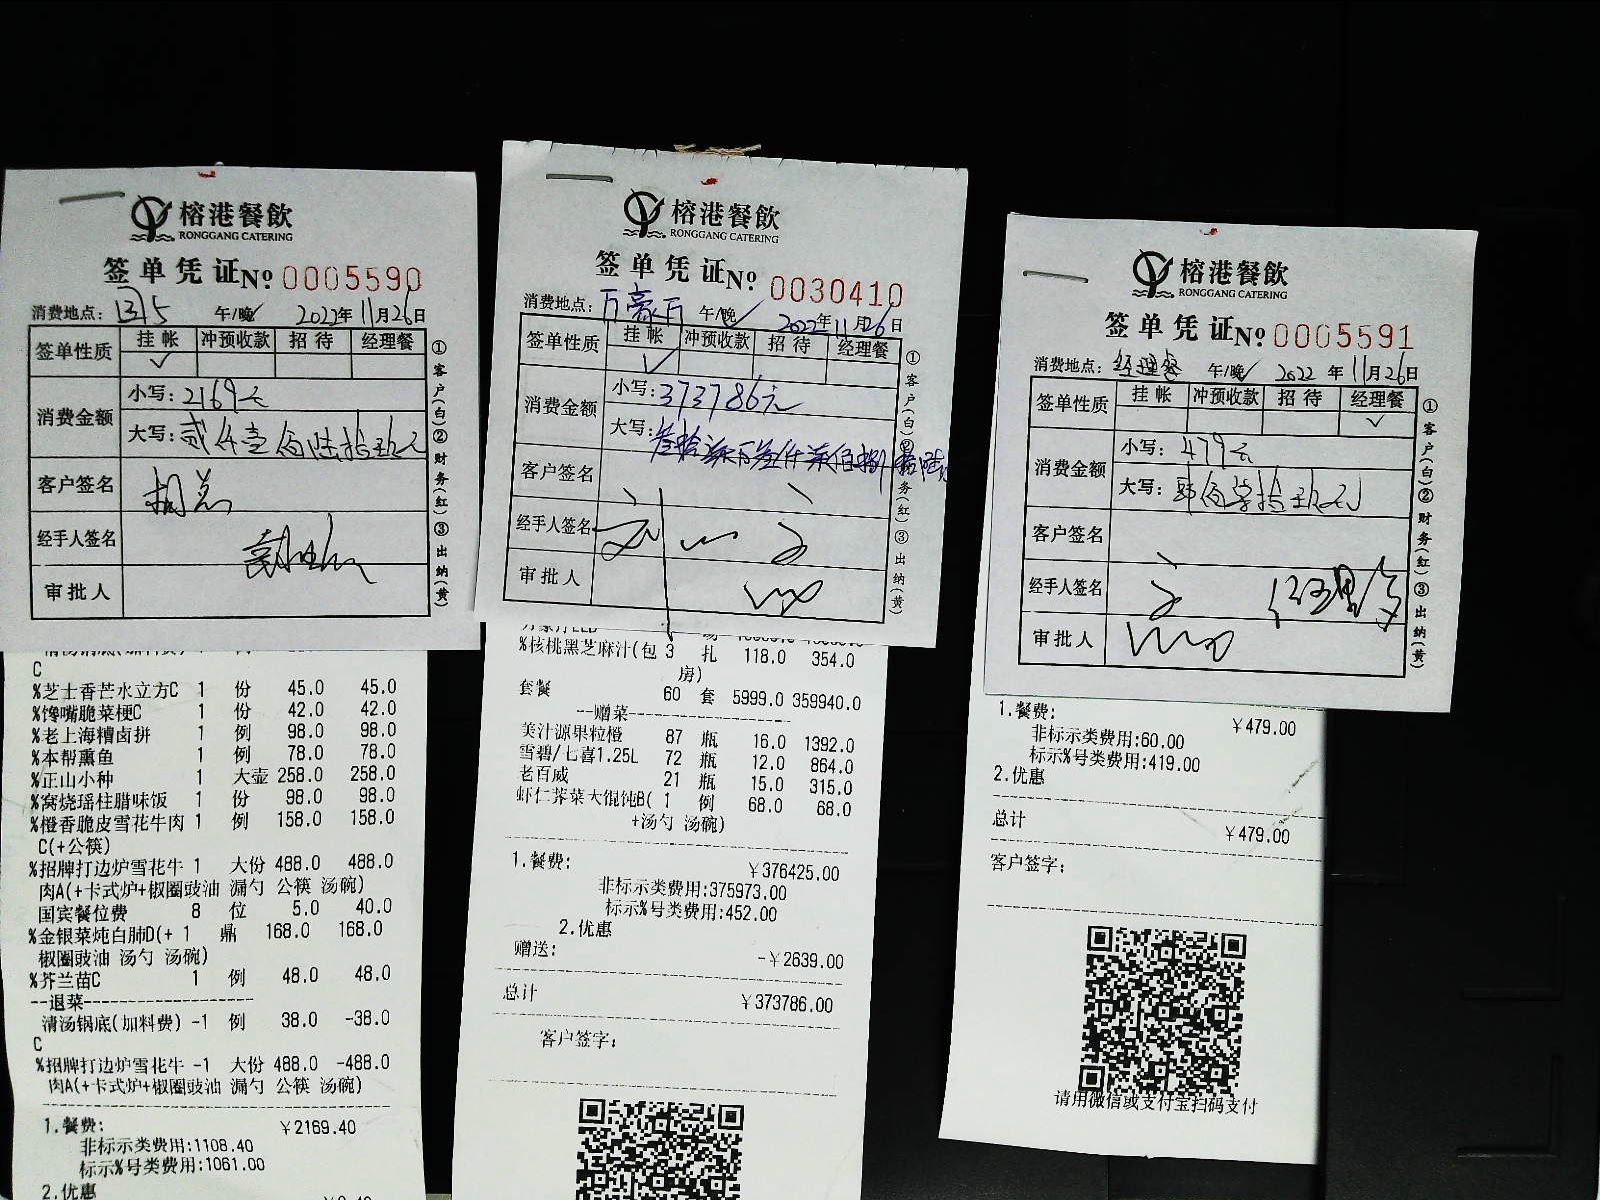 榕港餐飲
RONGGANG CATERING
签单凭证№ 0005590
消费地点: 午/晚 2022年11月26日
签单性质 挂帐 冲预收款 招待 经理餐
✓
消费金额 小写:2169元
大写:贰仟壹佰陆拾玖元
客户签名
经手人签名
审批人
①客户(白)②财务(红)③出纳(黄)
清汤锅底(加料费) 1 例
C
%芝士香芒水立方C 1 份 45.0 45.0
%馋嘴脆菜梗C 1 份 42.0 42.0
%老上海糟卤拼 1 例 98.0 98.0
%本帮熏鱼 1 例 78.0 78.0
%正山小种 1 大壶 258.0 258.0
%窝烧瑶柱腊味饭 1 份 98.0 98.0
%橙香脆皮雪花牛肉 1 例 158.0 158.0
C(+公筷)
%招牌打边炉雪花牛 1 大份 488.0 488.0
肉A(+卡式炉+椒圈豉油 漏勺 公筷 汤碗)
国宾餐位费 8 位 5.0 40.0
%金银菜炖白肺D(+ 1 鼎 168.0 168.0
椒圈豉油 汤勺 汤碗)
%芥兰苗C 1 例 48.0 48.0
--退菜--------------------
清汤锅底(加料费) -1 例 38.0 -38.0
C
%招牌打边炉雪花牛 -1 大份 488.0 -488.0
肉A(+卡式炉+椒圈豉油 漏勺 公筷 汤碗)
1.餐费: ￥2169.40
非标示类费用:1108.40
标示%号类费用:1061.00
2.优惠
榕港餐飲
RONGGANG CATERING
签单凭证№ 0030410
消费地点:万豪厅 午/晚✓ 2022年11月26日
签单性质 挂帐 冲预收款 招待 经理餐
✓
消费金额 小写:373786元
大写:叁拾柒万叁仟柒佰捌拾陆元
客户签名
经手人签名
审批人
①客户(白)②财务(红)③出纳(黄)
%核桃黑芝麻汁(包 3 扎 118.0 354.0
房)
套餐 60 套 5999.0 359940.0
--赠菜--------------------
美汁源果粒橙 87 瓶 16.0 1392.0
雪碧/七喜1.25L 72 瓶 12.0 864.0
老百威 21 瓶 15.0 315.0
虾仁荠菜大馄饨B( 1 例 68.0 68.0
+汤勺 汤碗)
1.餐费: ￥376425.00
非标示类费用:375973.00
标示%号类费用:452.00
2.优惠
赠送: -￥2639.00
总计 ￥373786.00
客户签字:
榕港餐飲
RONGGANG CATERING
签单凭证№ 0005591
消费地点:经理餐 午/晚✓ 2022年11月26日
签单性质 挂帐 冲预收款 招待 经理餐
✓
消费金额 小写:479元
大写:肆佰柒拾玖元
客户签名
经手人签名 经理餐
审批人
①客户(白)②财务(红)③出纳(黄)
1.餐费: ￥479.00
非标示类费用:60.00
标示%号类费用:419.00
2.优惠
总计 ￥479.00
客户签字:
请用微信或支付宝扫码支付